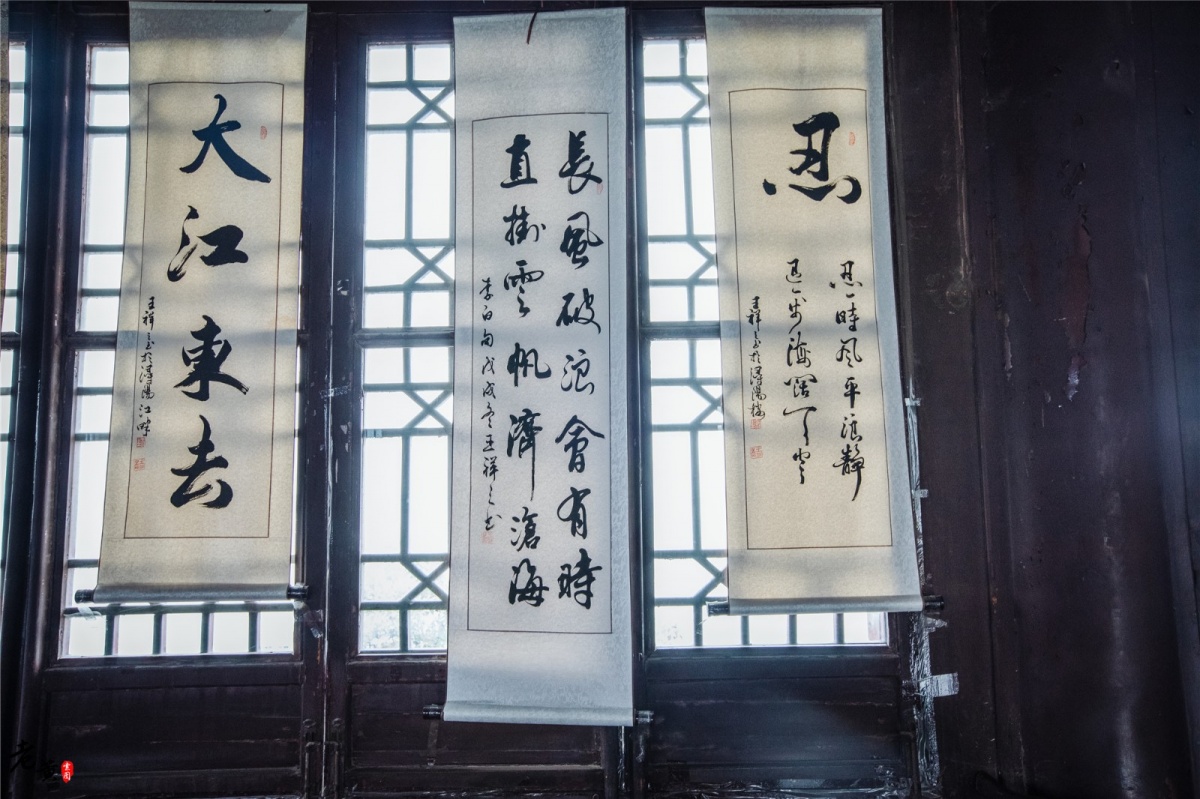 忍
忍一時风平浪静
退一步海阔天空
王祥之书於浔陽楼
長風破浪會有時
直掛雲帆濟滄海
李白句戊戌冬王祥之书
大江東去
王祥之书於浔陽江畔